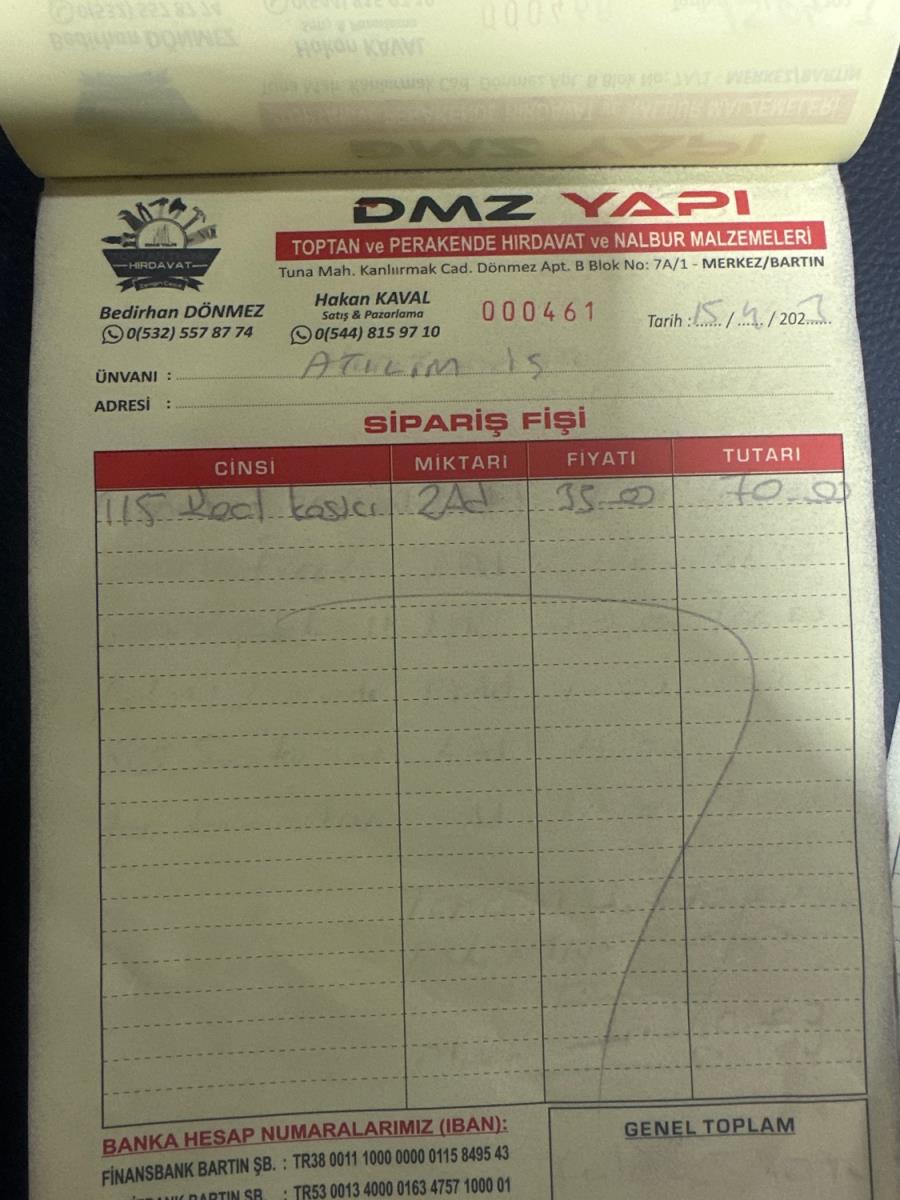 DMZ YAPI
TOPTAN ve PERAKENDE HIRDAVAT ve NALBUR MALZEMELERİ
HIRDAVAT
Tuna Mah. Kanlıırmak Cad. Dönmez Apt. B Blok No: 7A/1 - MERKEZ/BARTIN
Bedirhan DÖNMEZ
0(532) 557 87 74
Hakan KAVAL
Satış & Pazarlama
0(544) 815 97 10
000461
Tarih : 15 / 4 / 2023
ÜNVANI : ATILIM İŞ
ADRESİ :
SİPARİŞ FİŞİ
CİNSİ MİKTARI FİYATI TUTARI
115 2Ad 35.00 70.00
BANKA HESAP NUMARALARIMIZ (IBAN):
FİNANSBANK BARTIN ŞB. : TR38 0011 1000 0000 0115 8495 43
BARTIN ŞB. : TR53 0013 4000 0163 4757 1000 01
GENEL TOPLAM